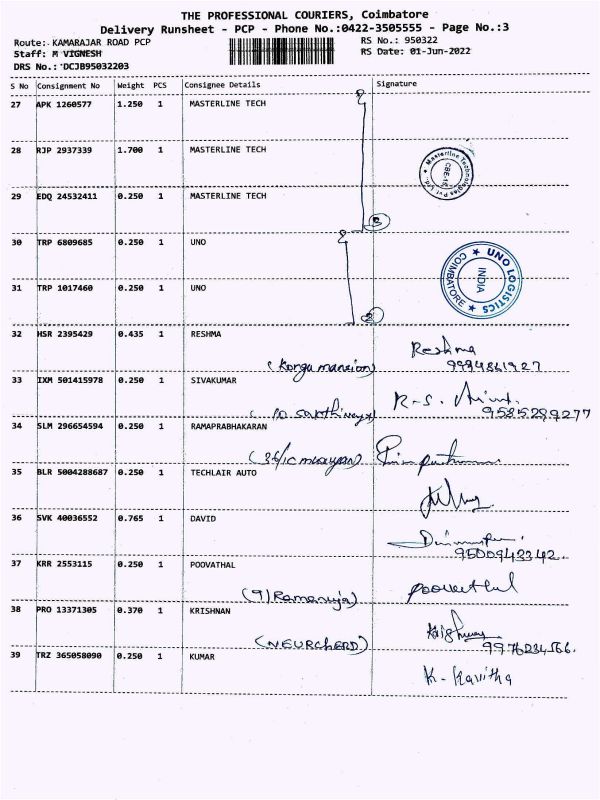 THE PROFESSIONAL COURIERS, Coimbatore
Delivery Runsheet - PCP - Phone No.:0422-3505555 - Page No.:3
Route: KAMARAJAR ROAD PCP RS No.: 950322
Staff: M VIGNESH RS Date: 01-Jun-2022
DRS No.: DCJB95032203
S No Consignment No Weight PCS Consignee Details Signature
27 APK 1260577 1.250 1 MASTERLINE TECH
28 RJP 2937339 1.700 1 MASTERLINE TECH
Masterline Technologies Pvt. Ltd.
29 EDQ 24532411 0.250 1 MASTERLINE TECH
3
30 TRP 6809685 0.250 1 UNO
UNO LOGISTICS
INDIA
COIMBATORE
31 TRP 1017460 0.250 1 UNO
2
32 HSR 2395429 0.435 1 RESHMA
Reshma
(Kongu mansion) 9994861927
33 IXM 501415978 0.250 1 SIVAKUMAR
9585289277
34 SLM 296654594 0.250 1 RAMAPRABHAKARAN
35 BLR 5004288687 0.250 1 TECHLAIR AUTO
36 SVK 40036552 0.765 1 DAVID
9500943342
37 KRR 2553115 0.250 1 POOVATHAL
Poovathal
(9) Ramanuja)
38 PRO 13371305 0.370 1 KRISHNAN
9976234566
39 TRZ 365058090 0.250 1 KUMAR
K- Kavitha